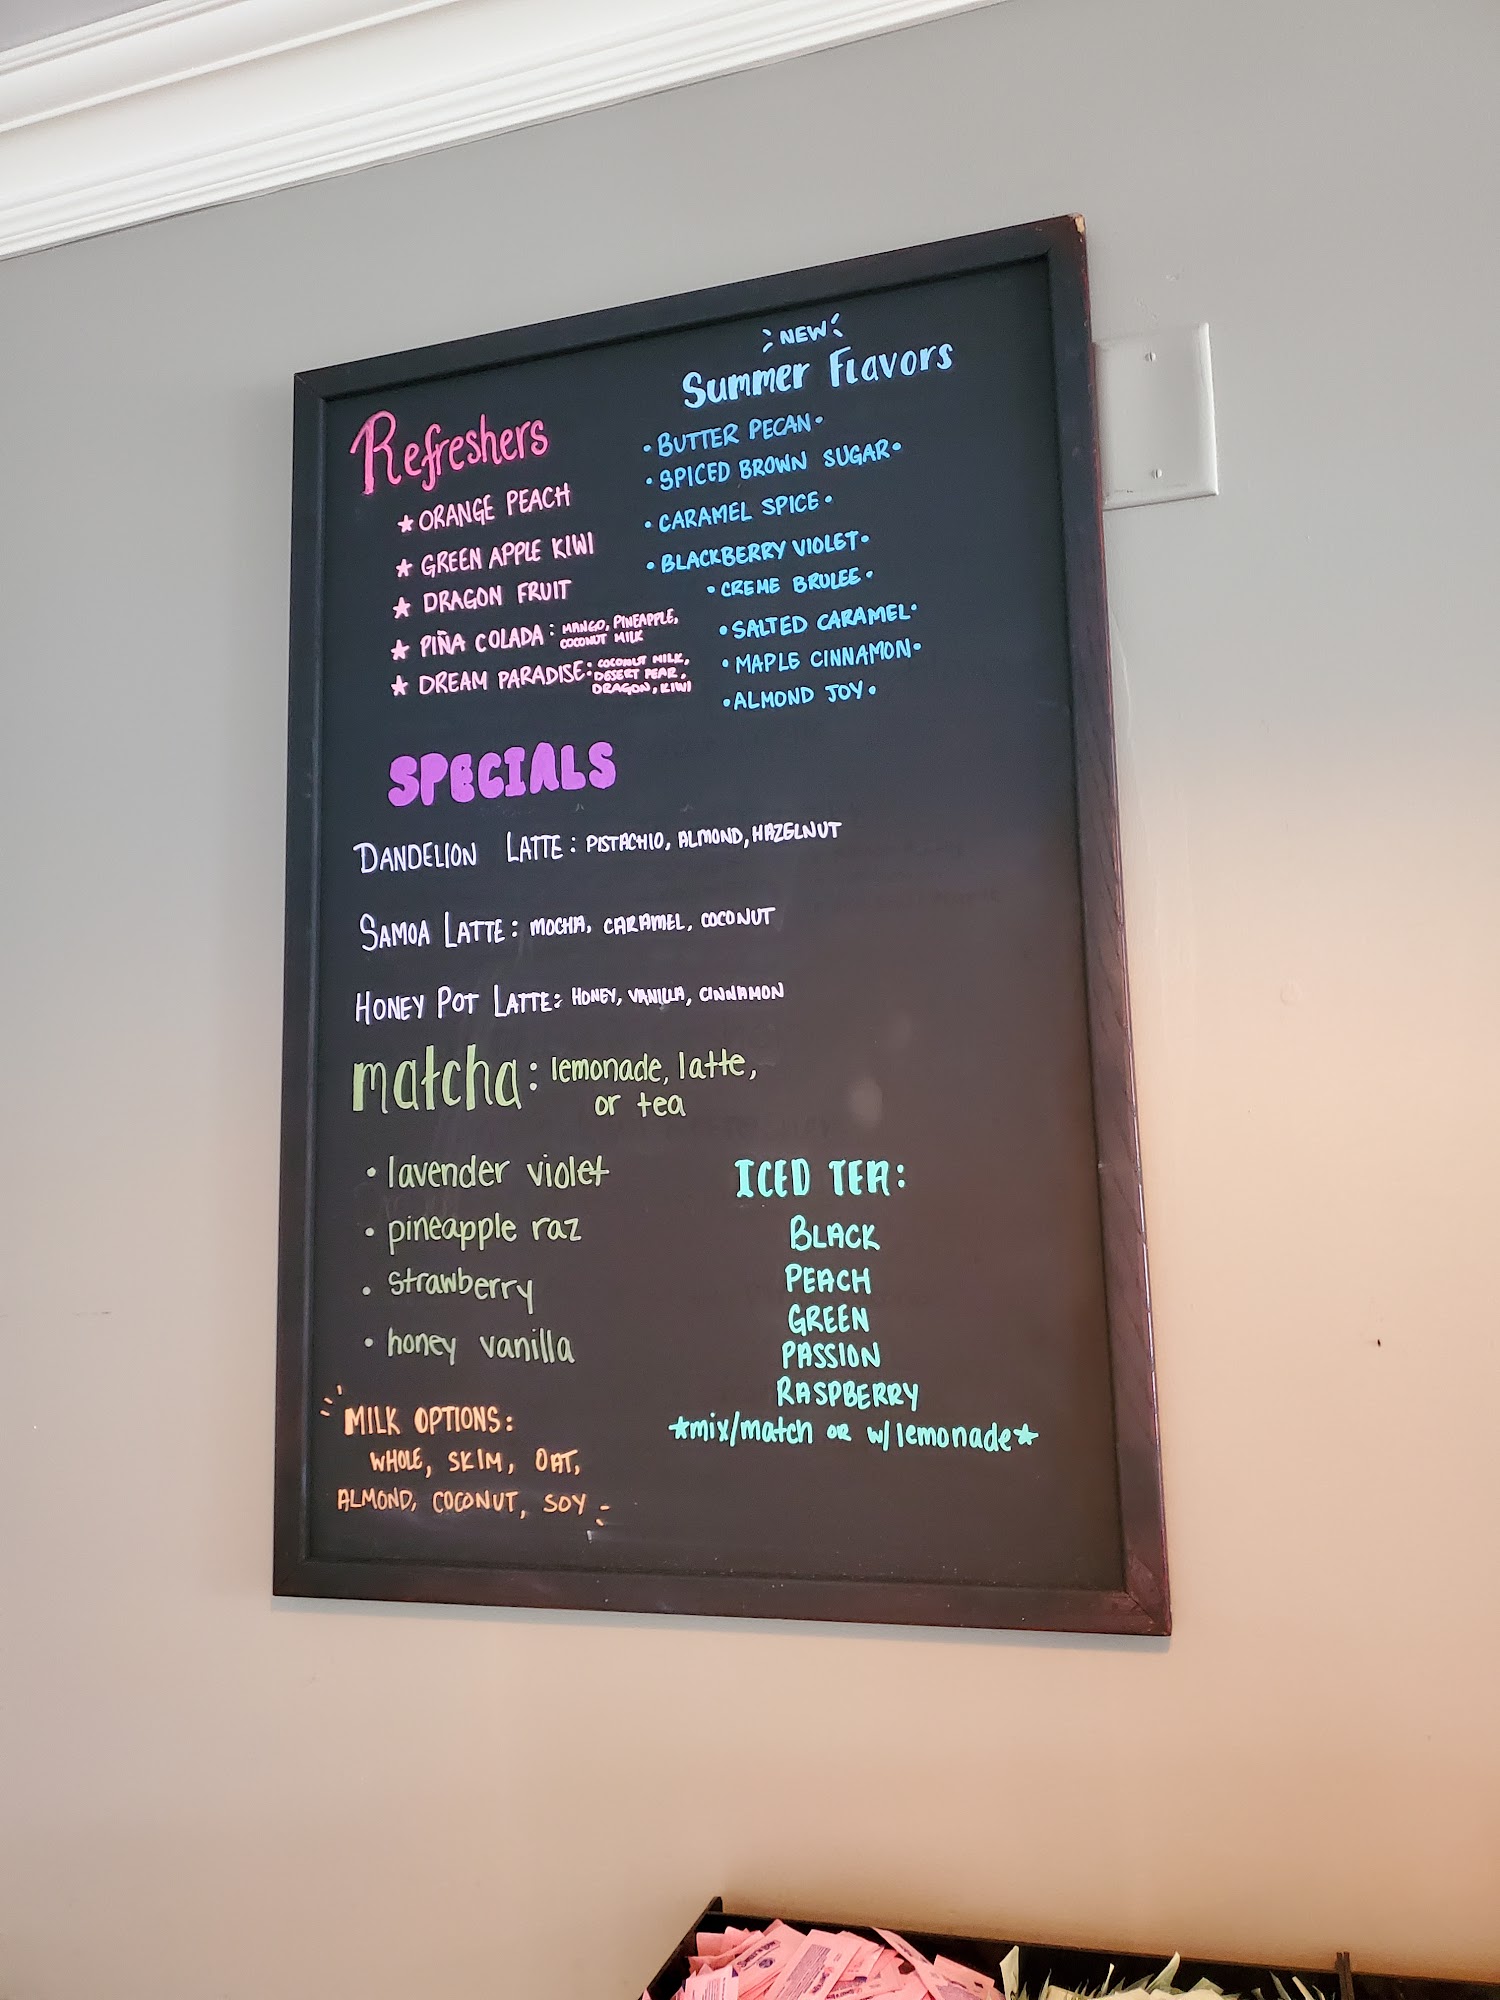 Refreshers
★ ORANGE PEACH
★ GREEN APPLE KIWI
★ DRAGON FRUIT
★ PIÑA COLADA: MANGO, PINEAPPLE,
COCONUT MILK
★ DREAM PARADISE: COCONUT MILK,
DESERT PEAR,
DRAGON, KIWI
NEW
Summer Flavors
• BUTTER PECAN •
• SPICED BROWN SUGAR •
• CARAMEL SPICE •
• BLACKBERRY VIOLET •
• CREME BRULEE •
• SALTED CARAMEL •
• MAPLE CINNAMON •
• ALMOND JOY •
SPECIALS
DANDELION LATTE: PISTACHIO, ALMOND, HAZELNUT
SAMOA LATTE: MOCHA, CARAMEL, COCONUT
HONEY POT LATTE: HONEY, VANILLA, CINNAMON
matcha: lemonade, latte,
or tea
• lavender violet
• pineapple raz
• strawberry
• honey vanilla
ICED TEA:
BLACK
PEACH
GREEN
PASSION
RASPBERRY
★mix/match OR w/ lemonade★
MILK OPTIONS:
WHOLE, SKIM, OAT,
ALMOND, COCONUT, SOY